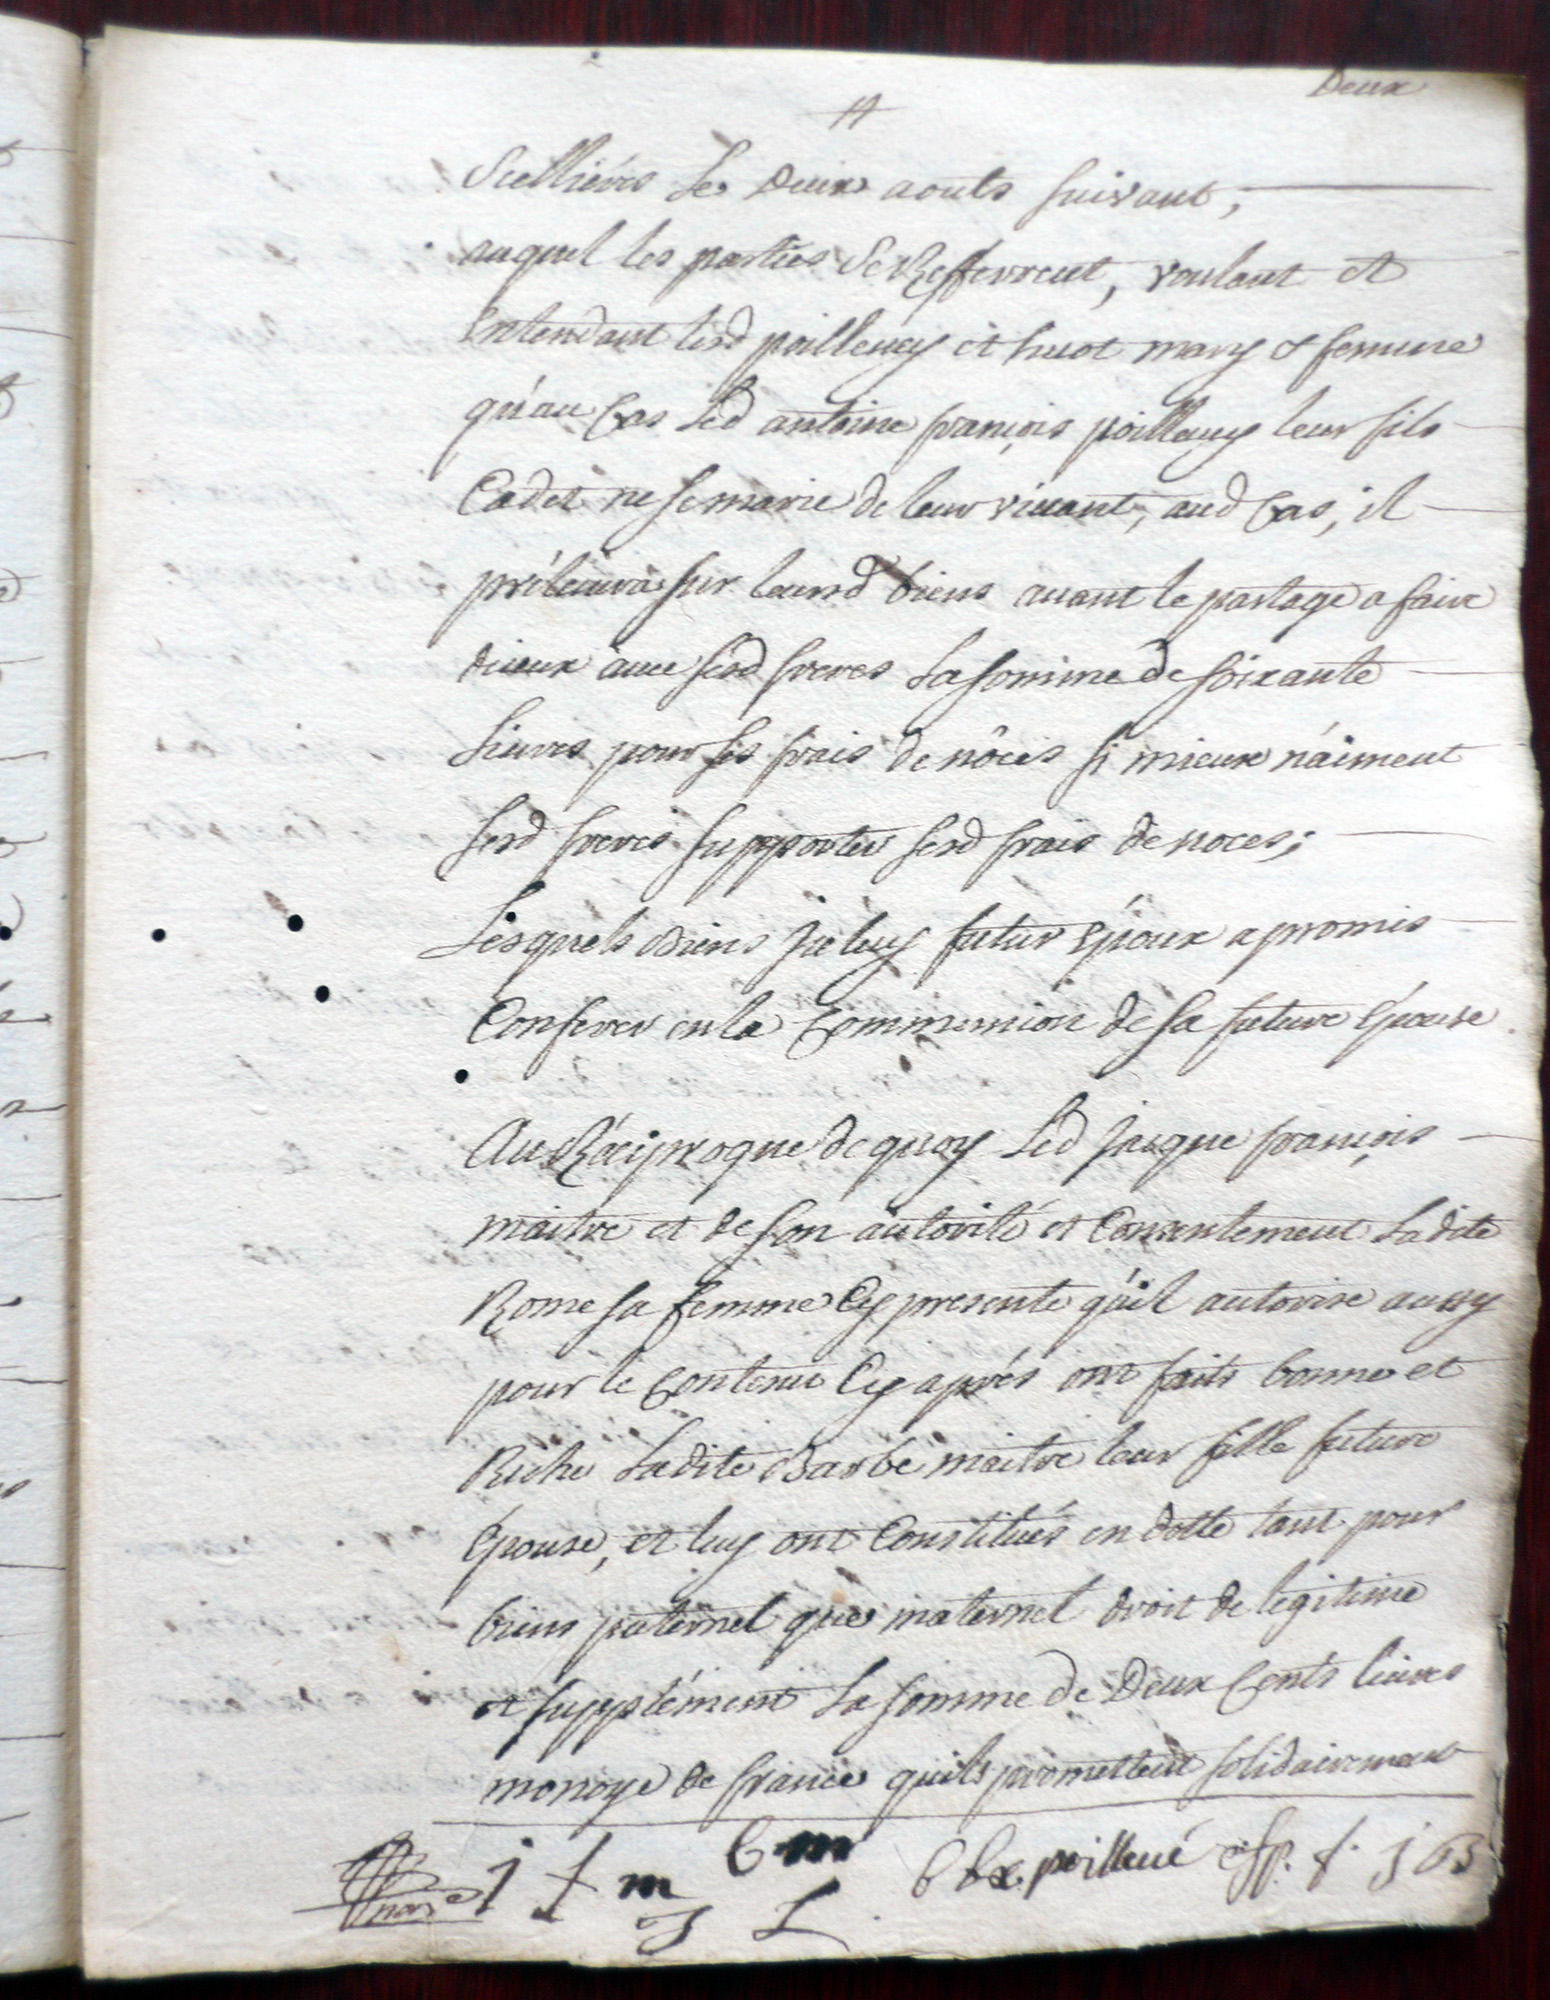 Deux
Scelliérés Le Deux aouts suivant;
auquel les parties Se Refferrent, voulant et
Entendant lesd poilleuey et huot mary & femme
qu'au Cas Led antoine françois poilleuey leur fils
Cadet ne se marie de leur viuant, aud Cas, il
préleuera sur leursd biens auant le partage a faire
d'iceux auec sesd freres La somme de soixante
Liures pour ses frais de nôces si mieux n'aiment
sesd freres supporter sesd frais de noces;
Lesquels Biens iceluy futur Epoux a promis
Conferer en la Communion de sa future Epouse
Au Réciproque de quoy Led jacque françois
maitre et de son autorité et Consentement Ladite
Rome sa femme Cy presente qu'il autorise aussy
pour le Contenu Cy aprés ont faits bonne et
Riche Ladite Barbe maitre leur fille future
Epouse, et luy ont Constitués en dotte tant pour
biens paternel que maternel droit de legitime
et supplément La somme de Deux Cents liures
monoye de france qu'ils promettent solidairement
j f m b m
J L
b bx poilleué f. j G B